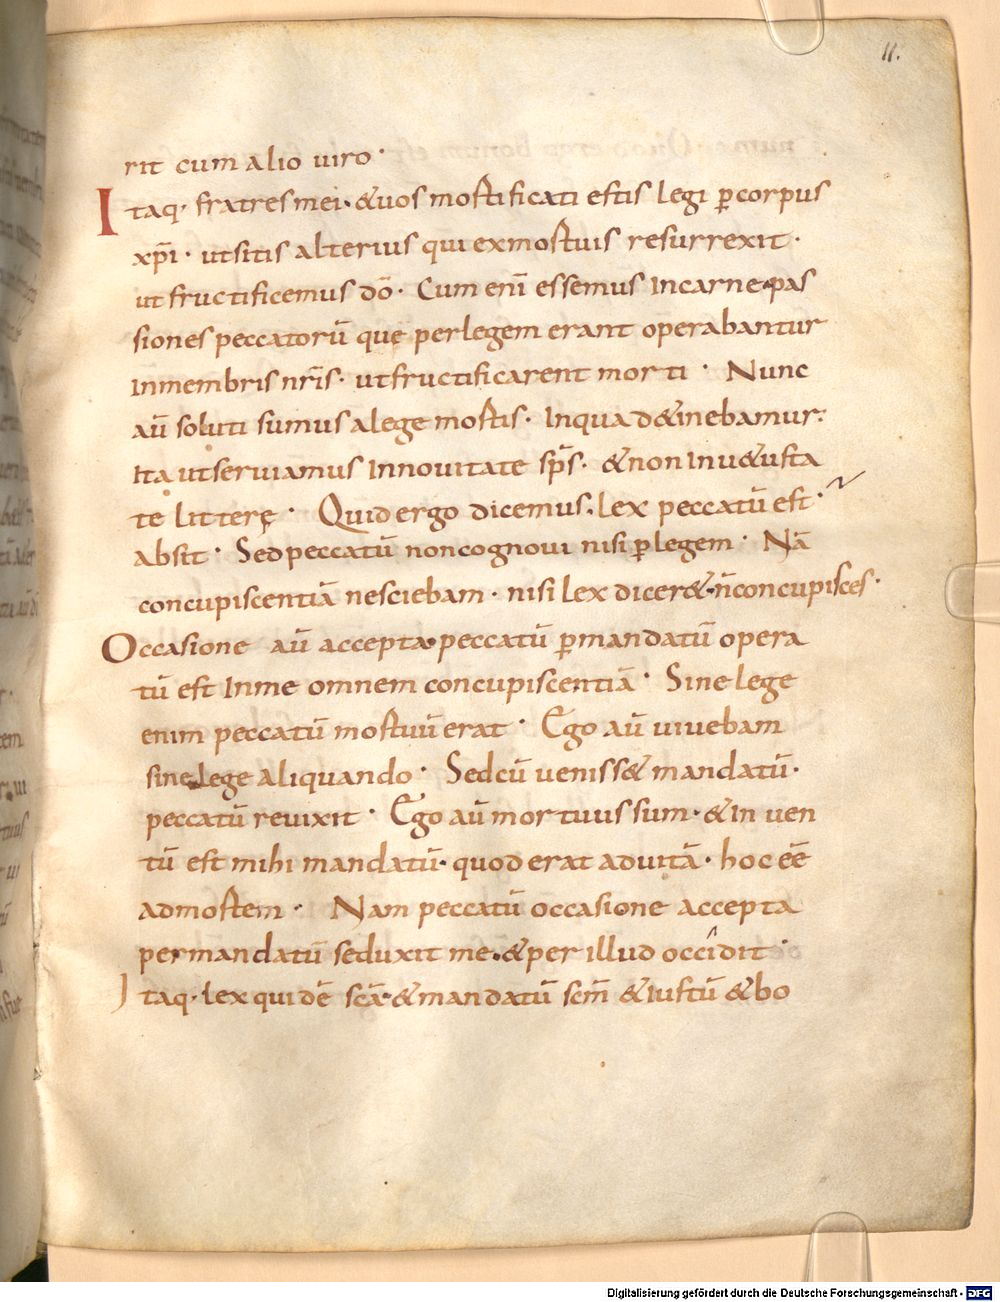 11.
rit cum alio uiro·
Itaq· fratres mei· & uos mortificati estis legi ꝑ corpus
xp̄i· ut sitis alterius qui ex mortuis resurrexit·
ut fructificemus dō· Cum enī essemus in carne· pas
siones peccatorū quę per legem erant operabantur
in membris nr̄is· ut fructificarent morti· Nunc
aū soluti sumus a lege mortis· in qua d&inebamur·
ita ut seruiamus in nouitate sp̄s· & non in u&usta
te litterę· Quid ergo dicemus· lex peccatū est·
absit· Sed peccatū non cognoui nisi ꝑ legem· Nā
concupiscentiā nesciebam· nisi lex dicer&· n̄ concupisces·
Occasione aū accepta· peccatū ꝑ mandatū opera
tū est in me omnem concupiscentiā· Sine lege
enim peccatū mortuū erat· Ego aū uiuebam
sine lege aliquando· Sed cūueniss& mandatū·
peccatū reuixit· Ego aū mortuus sum· & in uen
tū est mihi mandatū· quod erat ad uitā· hoc eē
ad mortem· Nam peccatū occasione accepta
per mandatū seduxit me· & per illud occidit·
Itaq· lex quidē sc̄a· & mandatū sc̄m & iustū & bo
Digitalisierung gefördert durch die Deutsche Forschungsgemeinschaft - DFG